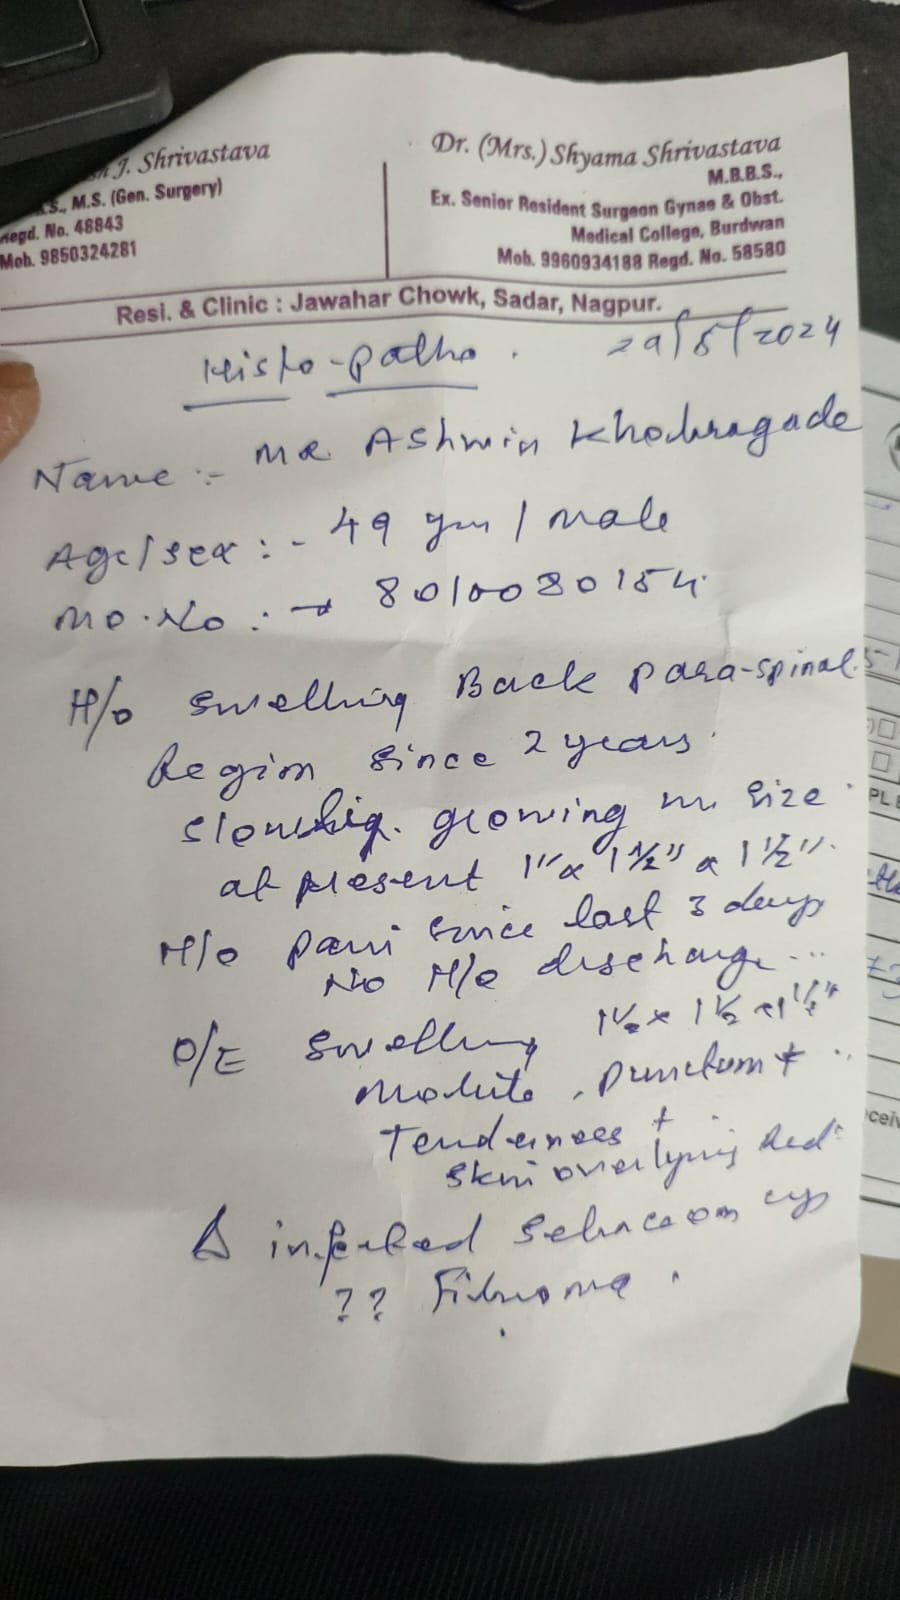 J. Shrivastava
M.S. (Gen. Surgery)
Regd. No. 48843
Mob. 9850324281
Dr. (Mrs.) Shyama Shrivastava
M.B.B.S.,
Ex. Senior Resident Surgeon Gynae & Obst.
Medical College, Burdwan
Mob. 9960934188 Regd. No. 58580
Resi. & Clinic : Jawahar Chowk, Sadar, Nagpur.
Histo-patho. 29/5/2024
Name :- Mr. Ashwin Khobragade
Age/sex :- 49 yrs / male
Mo. No :→ 8010080154
H/o swelling Back para-spinal
Region since 2 years.
growing in size
at present 1" x 1 1/2" x 1 1/2".
H/o pain since last 3 days
No H/o discharge
O/E swelling 1 1/2 x 1 1/2 x 1 1/2"
Mobile, Punctum +
Tenderness +
skin overlying Red
Δ infected Sebaceous cys
?? Fibroma.